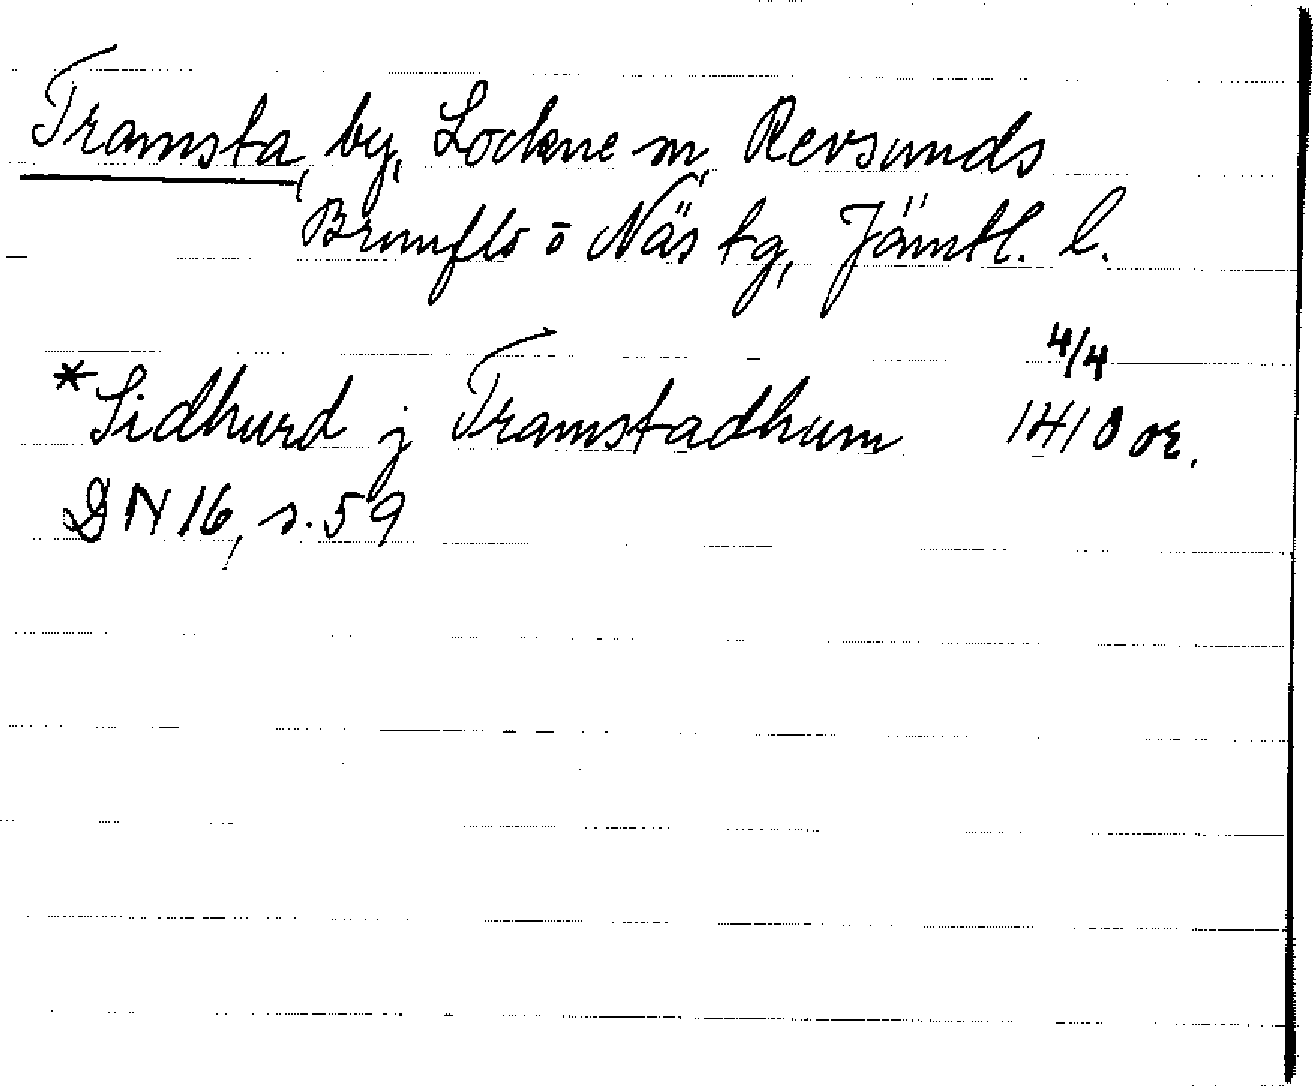 Tramsta, by, Lockne sn, Revsunds
Brunflo o Näs tg, Jämtl. l.
4/4
*Sidhurd j Tramstadhum 1410 or.
DN 16, s. 59